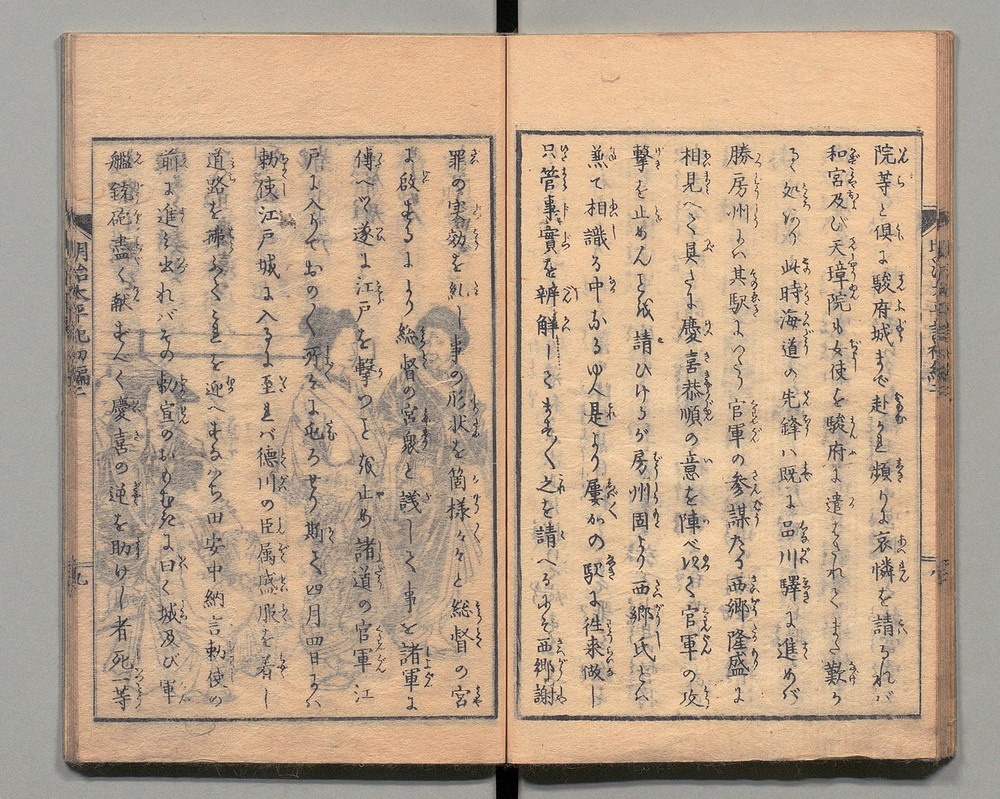 院等と倶に駿府城まで赴かれ頻りに哀憐を請られバ
和宮及び天璋院も女使を駿府に遣されてまた歎か
るゝ処あり此時海道の先鋒ハ既に品川驛に進めバ
勝房州にハ其駅にいたり官軍の参謀たる西郷隆盛に
相見へて具さに慶喜恭順の意を陣べ以て官軍の攻
撃を止めんとを請ひけるが房州固より西郷氏とハ
兼て相識る中なるゆへ是より屢かの駅に往来做し
只管事實を辨解してまた之を請へるにぞ西郷謝
罪の実効を糺し事の形状を箇様々々と総督の宮
に啓するにより総督の宮衆と議して事を諸軍に
傳へつ遂に江戸を撃つとを止め諸道の官軍江
戸に入りておの〳〵所々に屯ろせり斯て四月四日にハ
勅使江戸城に入るに至れバ徳川の臣属盛服を着し
道路を掃ふて之を迎へすなハち田安中納言勅使の
前に進み出れバその勅宣のおもむきに曰く城及び軍
艦銃砲盡く献ずべく慶喜の逆を助けし者死一等
明治太平記初編二
九